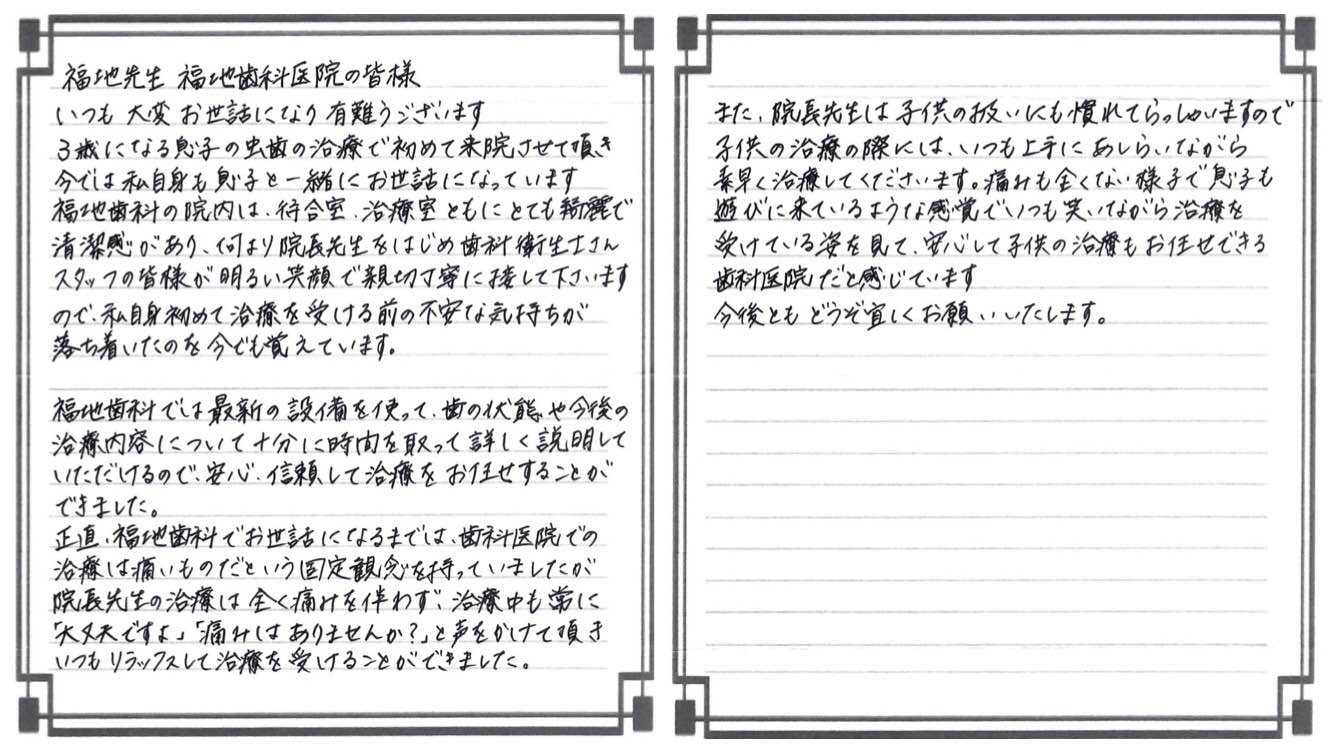 福地先生 福地歯科医院の皆様
いつも 大変 お世話になり 有難うございます
3歳になる息子の虫歯の治療で初めて来院させて頂き
今では私自身も息子と一緒にお世話になっています
福地歯科の院内は、待合室、治療室ともにとても綺麗で
清潔感があり、何より院長先生をはじめ歯科衛生士さん
スタッフの皆様が明るい笑顔で親切丁寧に接して下さいます
ので、私自身初めて治療を受ける前の不安な気持ちが
落ち着いたのを今でも覚えています。
福地歯科では最新の設備を使って、歯の状態や今後の
治療内容について十分に時間を取って詳しく説明して
いただけるので、安心、信頼して治療をお任せすることが
できました。
正直、福地歯科でお世話になるまでは、歯科医院での
治療は痛いものだという固定観念を持っていましたが
院長先生の治療は全く痛みを伴わず、治療中も常に
「大丈夫ですよ」「痛みはありませんか?」と声をかけて頂き
いつもリラックスして治療を受けることができました。
また、院長先生は子供の扱いにも慣れてらっしゃいますので
子供の治療の際には、いつも上手にあしらいながら
素早く治療してくださいます。痛みも全くない様子で息子も
遊びに来ているような感覚でいつも笑いながら治療を
受けている姿を見て、安心して子供の治療もお任せできる
歯科医院だと感じています
今後ともどうぞ宜しくお願いいたします。